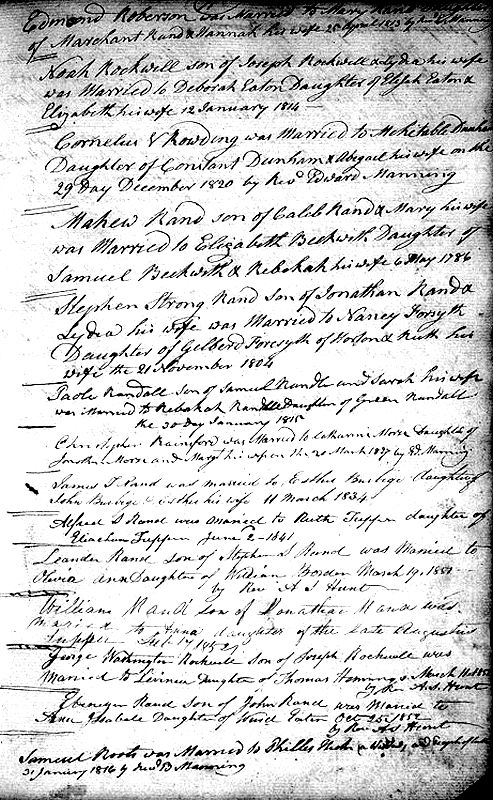 Edmond Roberson was Married to Mary Rand
of Marchant Rand & Hannah his wife 28 April 1813 by Rev E. Manning
Noah Rockwell son of Joseph Rockwell & Lydia his wife
was Married to Deborah Eaton Daughter of Elijah Eaton &
Elizabeth his wife 12 January 1814
Cornelius V Rowding was Married to Mehitable Dunham
Daughter of Constant Dunham & Abigail his wife on the
29 Day December 1820 by Revd Edward Manning
Mahew Rand son of Caleb Rand & Mary his wife
was Married to Elizabeth Beckwith Daughter of
Samuel Beckwith & Rebekah his wife 6 May 1786
Stephen Strong Rand son of Jonathan Rand &
Lydia his wife was Married to Nancy Forsyth
Daughter of Gelberd Forsyth of Horton & Ruth his
wife the 21 November 1804
Randall son of Samuel Randle and Sarah his wife
was Married to Rebekah Randle Daughter of Green Randall
the 30 day January 1815
Christopher Rainford was Married to Catharine Morse Daughter of
Morse and Mary his wife on the 20 March 1827 by Ed Manning
James I Rand was married to Esther Burbige daughter of
John Burbige & Esther his wife 11 March 1834
Alfred S Rand was married to Ruth Tupper daughter of
Eliachum Tupper June 2 - 1841
Leander Rand son of Stephen S Rand was Married to
Olivia Ann Daughter of William Borden March 19, 1851
by Rev A S Hunt
William Rand son of Jonathan Rand was
Married to Anna daughter of the late Augustus
Tupper Feb 17 1852
George Washington Rockwell Son of Joseph Rockwell was
Married to Lavinia Daughter of Thomas March 11
by Rev A. S. Hunt
Ebenezer Rand son of John Rand was Married to
Isabale Daughter of Ward Eaton Oct 25 1852
by Rev A S Hunt
Samuel Roots was Married to Phillis
31 January 1816 by Manning